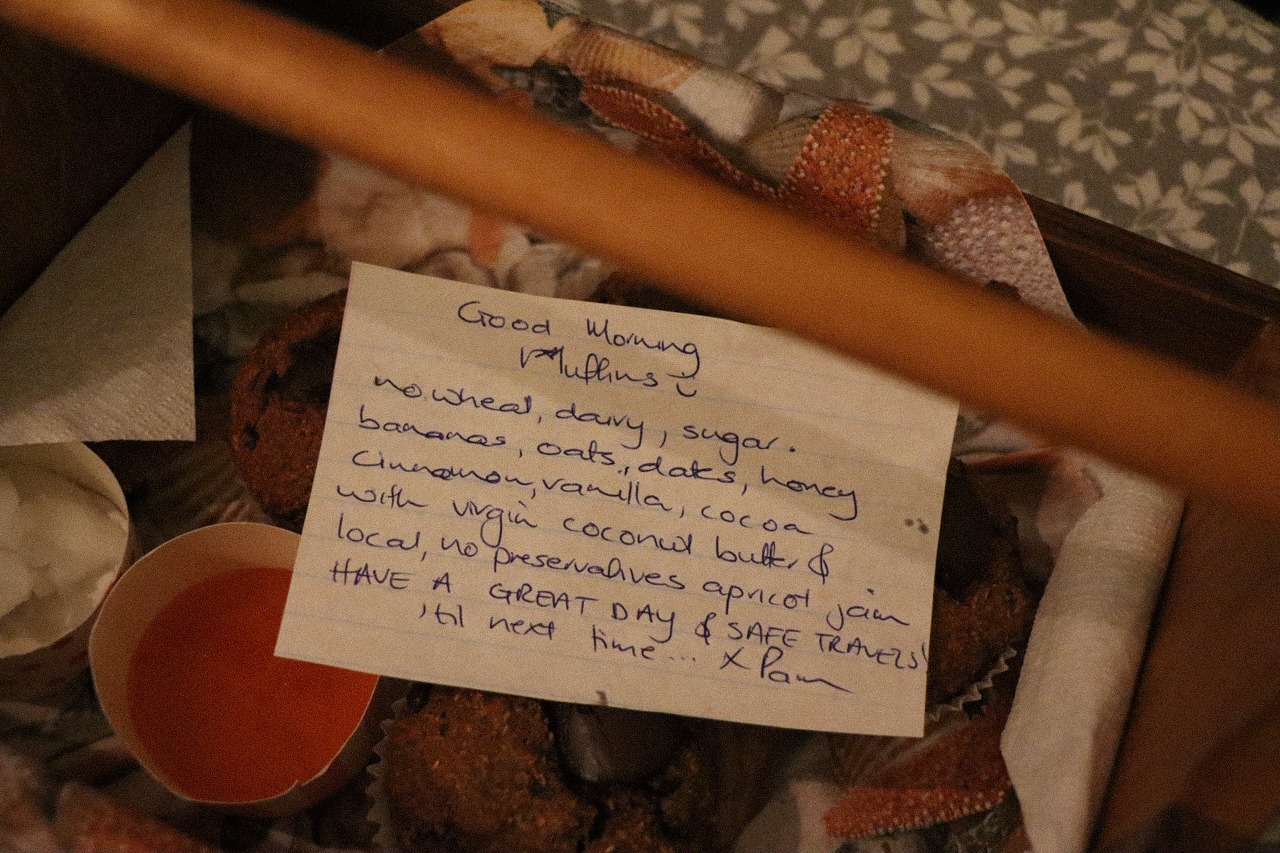 Good Morning
Muffins
no wheat, dairy, sugar.
bananas, oats, dates, honey
cinnamon, vanilla, cocoa
with virgin coconut butter &
local, no preservatives apricot jam
HAVE A GREAT DAY & SAFE TRAVELS!
'til next time... X Pam